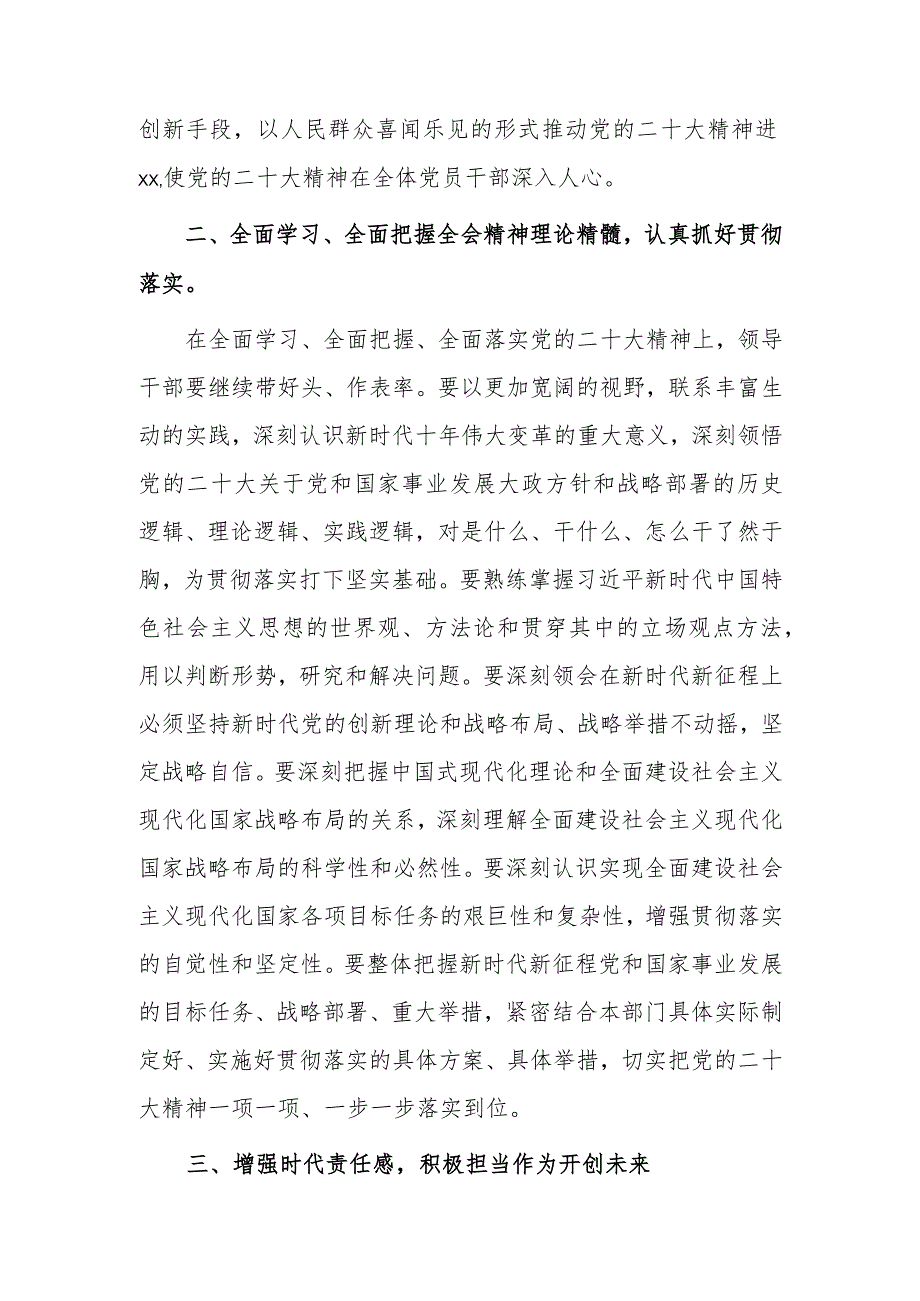 创新手段，以人民群众喜闻乐见的形式推动党的二十大精神进
xx,使党的二十大精神在全体党员干部深入人心。
二、全面学习、全面把握全会精神理论精髓，认真抓好贯彻
落实。
在全面学习、全面把握、全面落实党的二十大精神上，领导
干部要继续带好头、作表率。要以更加宽阔的视野，联系丰富生
动的实践，深刻认识新时代十年伟大变革的重大意义，深刻领悟
党的二十大关于党和国家事业发展大政方针和战略部署的历史
逻辑、理论逻辑、实践逻辑，对是什么、干什么、怎么干了然于
胸，为贯彻落实打下坚实基础。要熟练掌握习近平新时代中国特
色社会主义思想的世界观、方法论和贯穿其中的立场观点方法，
用以判断形势，研究和解决问题。要深刻领会在新时代新征程上
必须坚持新时代党的创新理论和战略布局、战略举措不动摇，坚
定战略自信。要深刻把握中国式现代化理论和全面建设社会主义
现代化国家战略布局的关系，深刻理解全面建设社会主义现代化
国家战略布局的科学性和必然性。要深刻认识实现全面建设社会
主义现代化国家各项目标任务的艰巨性和复杂性，增强贯彻落实
的自觉性和坚定性。要整体把握新时代新征程党和国家事业发展
的目标任务、战略部署、重大举措，紧密结合本部门具体实际制
定好、实施好贯彻落实的具体方案、具体举措，切实把党的二十
大精神一项一项、一步一步落实到位。
三、增强时代责任感，积极担当作为开创未来